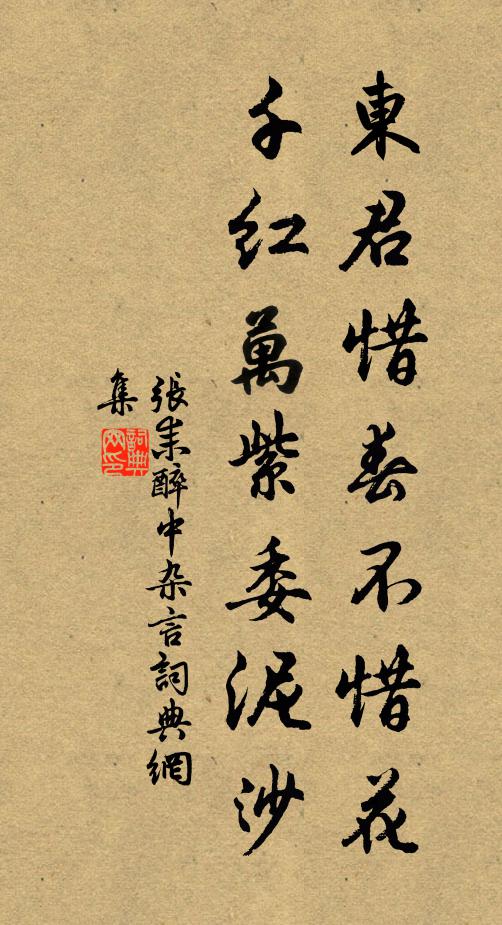 東君惜春不惜花
千红萬紫委泥沙
張耒醉中杂言詞典網
集
詞典
网印